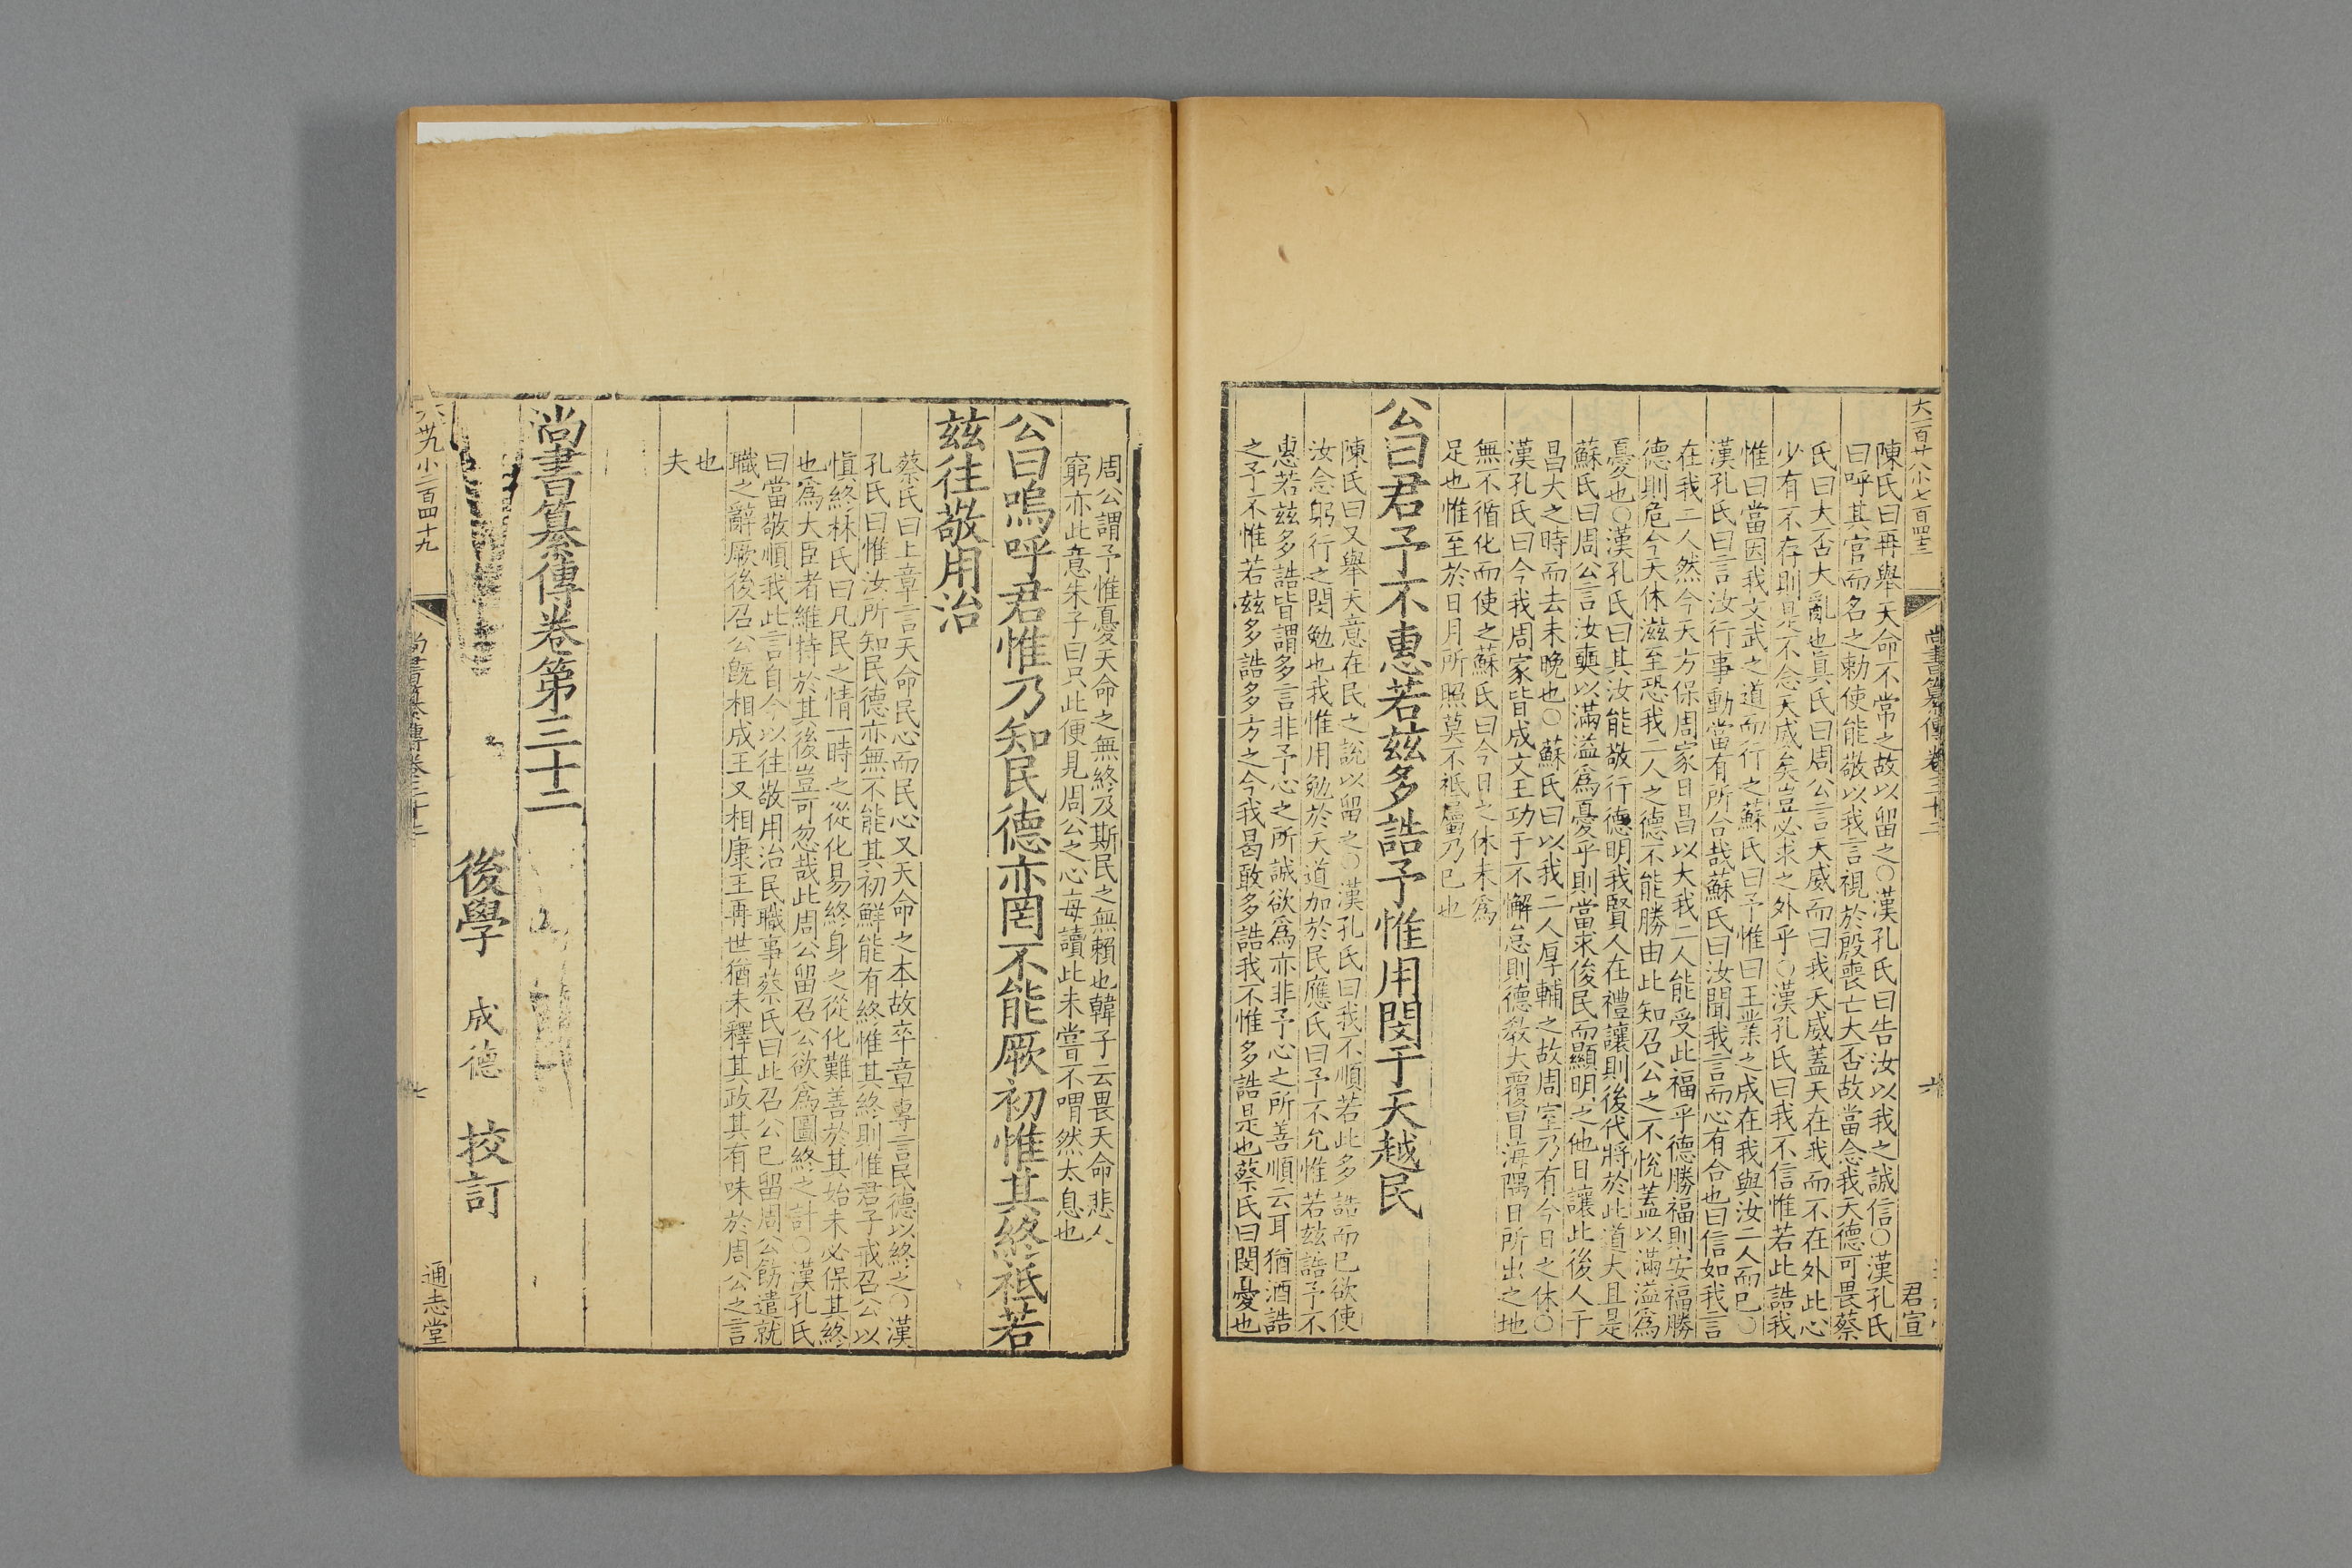 大一百廿八小七百四三
尚書纂傳卷三十二
六
君宣
陳氏曰再舉天命不常之故以留之○漢孔氏曰告汝以我之誠信○漢孔氏
曰呼其官而名之勅使能敬以我言視於殷喪亡大否故當念我天德可畏蔡
氏曰大否大亂也真氏曰周公言天威而曰我天威蓋天在我而不在外此心
少有不存則是不念天威矣豈必求之外乎○漢孔氏曰我不信惟若此誥我
惟曰當因我文武之道而行之蘇氏曰予惟曰王業之成在我與汝二人而已○
漢孔氏曰言汝行事動當有所合哉蘇氏曰汝聞我言而心有合也曰信如我言
在我二人然今天方保周家日昌以大我二人能受此福乎德勝福則安福勝
德則危今天休滋至恐我二人之德不能勝由此知召公之不悅蓋以滿溢爲
憂也○漢孔氏曰其汝能敬行德明我賢人在禮讓則後代將於此道大且是
蘇氏曰周公言汝奭以滿溢爲憂乎則當求俊民而顯明之他日讓此後人于
昌大之時而去未晚也○蘇氏曰以我二人厚輔之故周室乃有今日之休○
漢孔氏曰今我周家皆成文王功于不懈怠則德教大覆冒海隅日所出之地
無不循化而使之蘇氏曰今日之休未爲
足也惟至於日月所照莫不祗屬乃已也
公曰君予不惠若茲多誥予惟用閔于天越民
陳氏曰又舉天意在民之說以留之○漢孔氏曰我不順若此多誥而已欲使
汝念躬行之閔勉也我惟用勉於天道加於民應氏曰予不允惟若茲誥予不
惠若茲多誥皆謂多言非予心之所誠欲爲亦非予心之所善順云耳猶酒誥
之予不惟若茲多誥多方之今我曷敢多誥我不惟多誥是也蔡氏曰閔憂也
周公謂予惟憂天命之無終及斯民之無賴也韓子云畏天命悲人
窮亦此意朱子曰只此便見周公之心每讀此未嘗不喟然太息也
公曰嗚呼君惟乃知民德亦罔不能厥初惟其終祗若
茲往敬用治
蔡氏曰上章言天命民心而民心又天命之本故卒章專言民德以終之○漢
孔氏曰惟汝所知民德亦無不能其初鮮能有終惟其終則惟君子戒召公以
愼終林氏曰凡民之情一時之從化易終身之從化難善於其始未必保其終
也爲大臣者維持於其後豈可忽哉此周公留召公欲爲圖終之計○漢孔氏
曰當敬順我此言自今以往敬用治民職事蔡氏曰此召公已留周公飭遣就
職之辭厥後召公旣相成王又相康王再世猶未釋其政其有味於周公之言
也
夫
尚書纂傳卷第三十二
後學 成德 校訂
小二百四十九
尚書纂傳卷三十二
七
通志堂